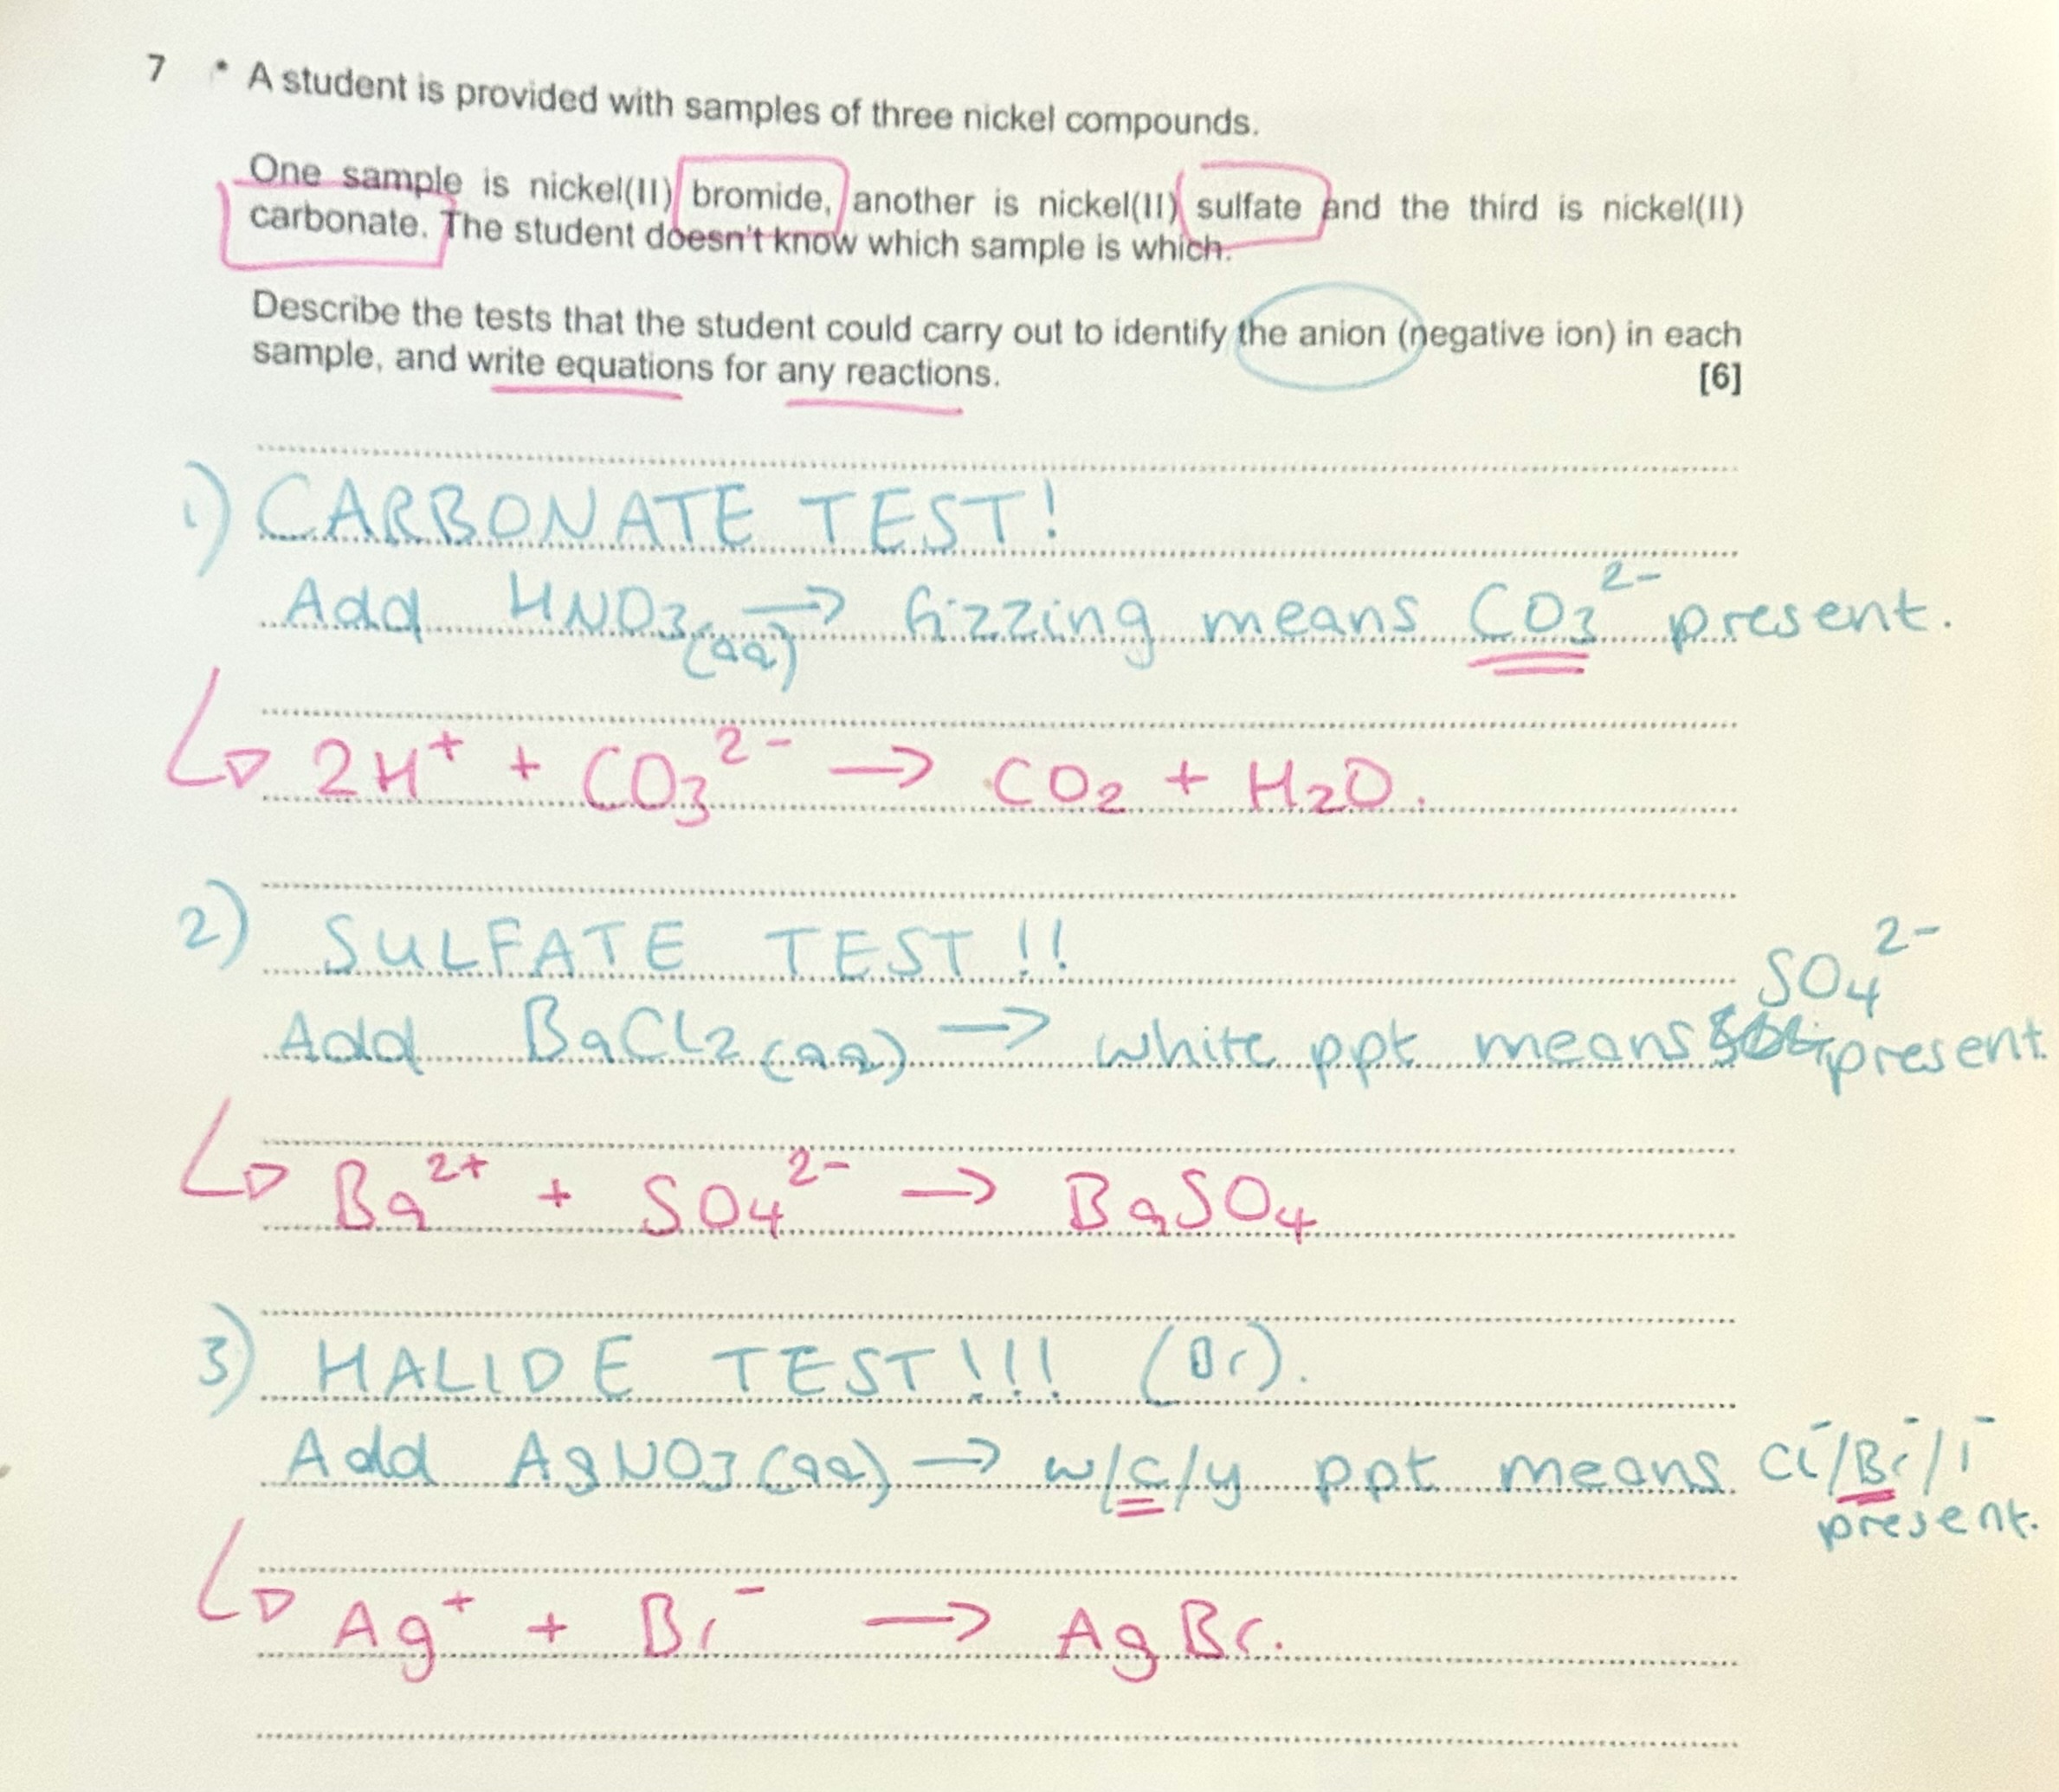 7 * A student is provided with samples of three nickel compounds.
One sample is nickel(II) bromide, another is nickel(II) sulfate and the third is nickel(II)
carbonate. The student doesn't know which sample is which.
Describe the tests that the student could carry out to identify the anion (negative ion) in each
sample, and write equations for any reactions. [6]
1) CARBONATE TEST!
Add HNO₃(aq) → fizzing means CO₃²⁻ present.
2H⁺ + CO₃²⁻ → CO₂ + H₂O.
2) SULFATE TEST!!
Add BaCl₂(aq) → white ppt means SO₄²⁻ present.
Ba²⁺ + SO₄²⁻ → BaSO₄
3) HALIDE TEST!!! (Br).
Add AgNO₃(aq) → w/c/y ppt means Cl⁻/Br⁻/I⁻
present.
Ag⁺ + Br⁻ → AgBr.